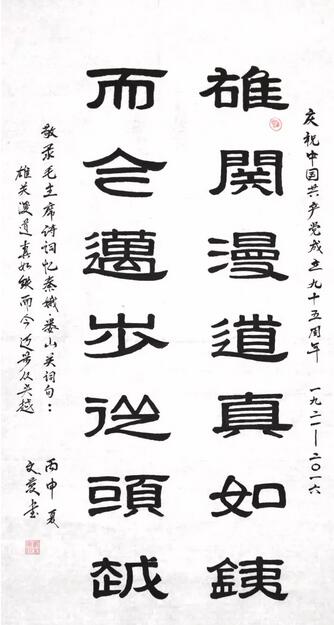 庆祝中国共产党成立九十五周年 一九二一—二〇一六
雄関漫道真如銕
而今邁步從頭越
敬录毛主席诗词忆秦娥娄山关词句：
雄关漫道真如铁而今迈步从头越
丙申夏
文 书